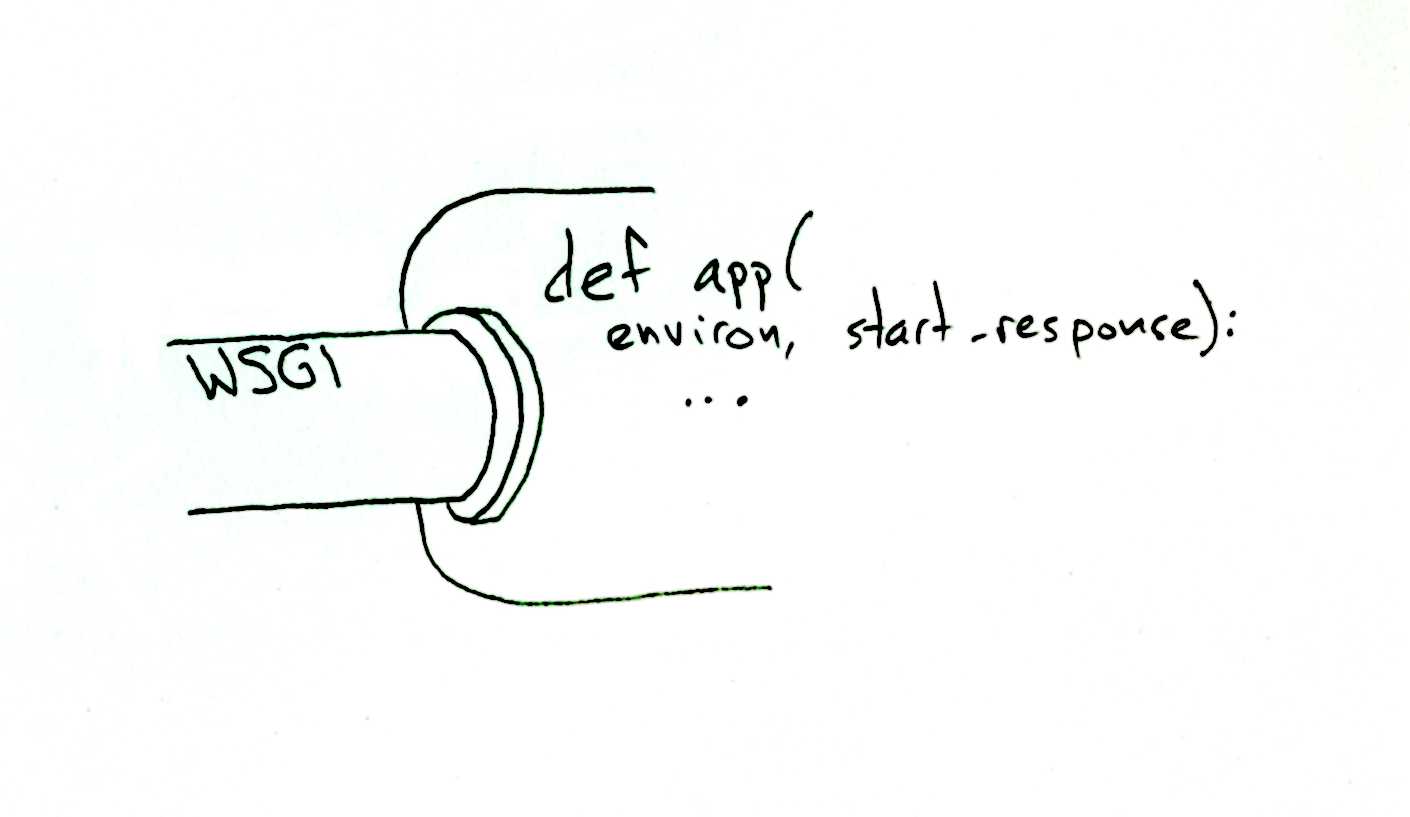 WSGI
def app(
environ, start_response):
...